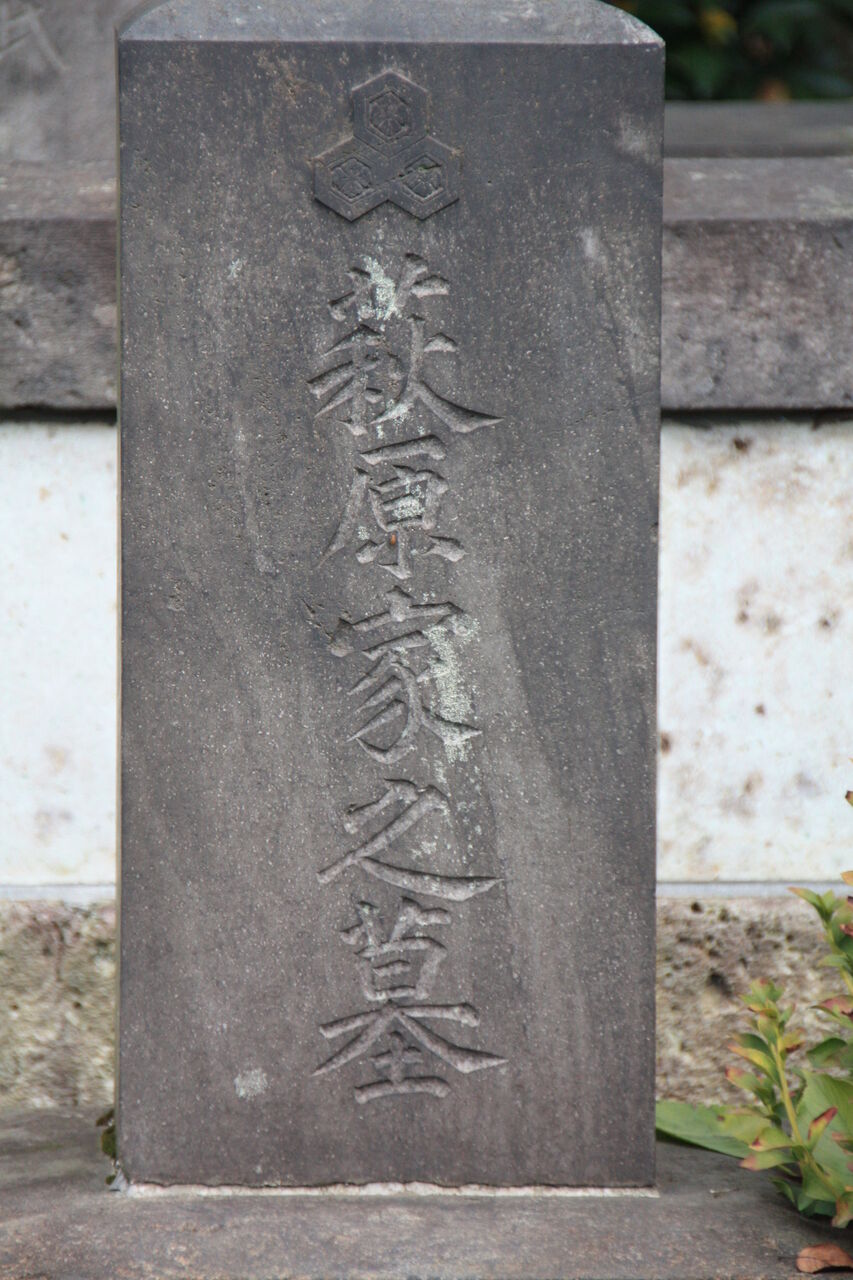 萩原家之墓